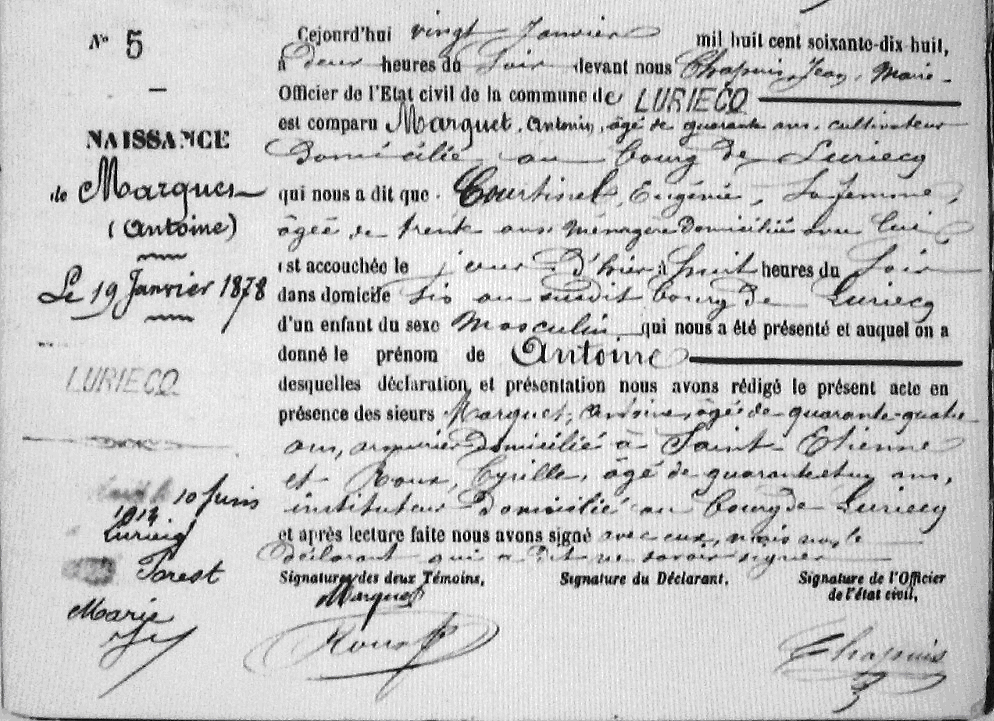 N° 5
NAISSANCE
de Marquet
(Antoine)
Le 19 Janvier 1878
LURIECQ
10 Juin
1913
Luriecq
Forest
Marie
Cejourd'hui vingt Janvier mil huit cent soixante-dix huit,
à deux heures du Soir devant nous Chapuis, Jean, Marie
Officier de l'Etat civil de la commune de LURIECQ
est comparu Marquet, Antonin, âgé de quarante ans, cultivateur
domicilié au bourg de Luriecq
qui nous a dit que Courtinel, Eugénie, Sa femme,
âgée de trente ans ménagère domiciliée avec lui
est accouchée le jour d'hier à huit heures du Soir
dans domicile sis au susdit bourg de Luriecq
d'un enfant du sexe Masculin qui nous a été présenté et auquel on a
donné le prénom de Antoine
desquelles déclaration et présentation nous avons rédigé le présent acte en
présence des sieurs Marquet, Antoine, âgé de quarante-quatre
ans, armurier domicilié à Saint Etienne
et Roux, Cyrille, âgé de quarante et un ans,
instituteur domicilié au bourg de Luriecq
et après lecture faite nous avons signé avec eux, mais non le
déclarant qui a dit ne savoir signer
Signatures des deux Témoins, Signature du Déclarant. Signature de l'Officier
de l'état civil,
Marquet
Roux
Chapuis